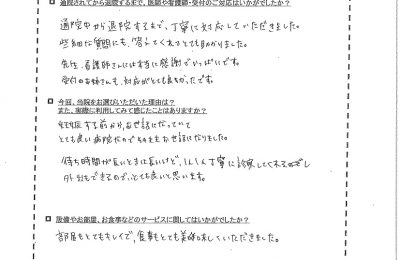 □ 通院されてから退院するまで、医師や看護師・受付のご対応はいかがでしたか？
通院中から退院するまで、丁寧に対応していただきました。
些細な質問にも、答えてくれてとても助かりました。
先生、看護師さんには本当に感謝でいっぱいです。
受付のお姉さんも、対応がとても良かったです。
□ 今回、当院をお選びいただいた理由は？
また、実際に利用してみて感じたことはありますか？
妊娠する前からお世話になっていて
とても良い病院なのでそのままお世話になりました。
待ち時間が長いときは長いけど、1人1人丁寧に診察してくれるので
外出もできるので、とても良いと思います。
□ 設備やお部屋、お食事などのサービスに関してはいかがでしたか？
部屋もとてもキレイで、食事もとても美味しくいただきました。